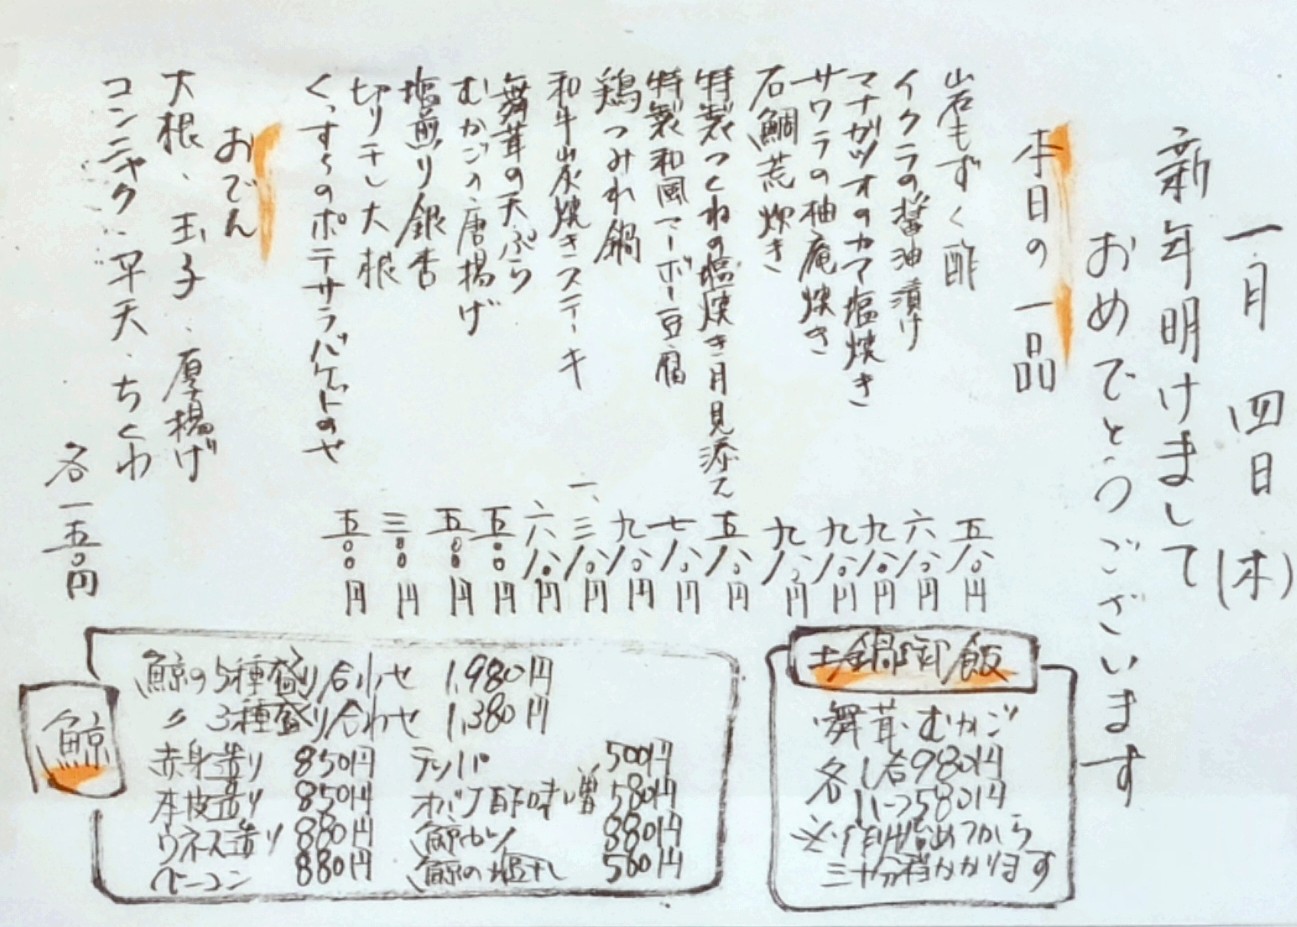 一月 四日 (木)
新年明けまして
おめでとうございます
本日の一品
岩もずく酢 五八〇円
イクラの醤油漬け 六八〇円
マナガツオのカマ塩焼き 九八〇円
サワラの柚庵焼き 九八〇円
石鯛荒炊き 九八〇円
特製つくねの塩焼き月見添え 五八〇円
特製和風マーボー豆腐 七八〇円
鶏つみれ鍋 九八〇円
和牛炭焼きステーキ 一、三八〇円
舞茸の天ぷら 六八〇円
むかごの唐揚げ 五〇〇円
塩煎り銀杏 五〇〇円
切り干し大根 三〇〇円
ポテサラバゲットのせ 五〇〇円
おでん
大根、玉子、厚揚げ
コンニャク、平天、ちくわ
各一五〇円
土鍋御飯
舞茸・むかご
各1合980円
ハーフ580円
※ 始めてから
三十分程かかります
鯨
鯨の5種盛り合わせ 1,980円
〃 3種盛り合わせ 1,380円
赤身造り 850円
本皮造り 850円
ウネス造り 880円
ベーコン 880円
テッパ 500円
オバケ酢味噌 580円
鯨カツ 880円
鯨の塩干し 500円